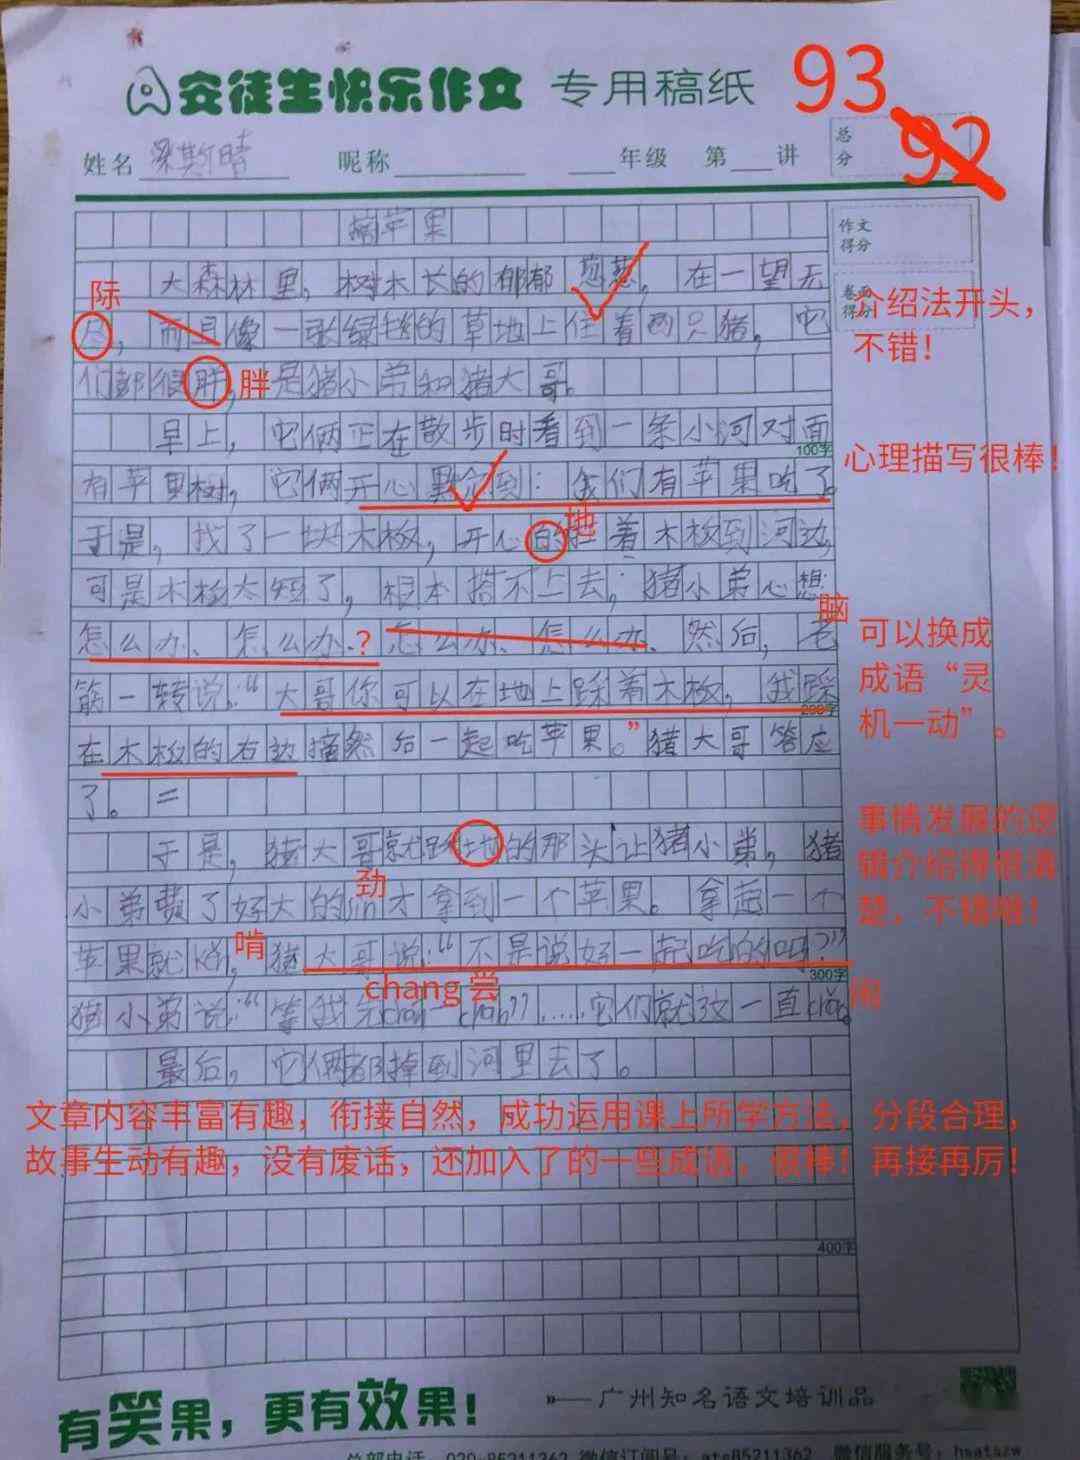 安徒生快乐作文 专用稿纸 93
92
姓名 梁斯晴 昵称 年级 第 讲 总分
摘苹果
作文得分
大森林里，树木长的郁郁葱葱，在一望无
卷面得分
际
尽，而且像一张绿毯的草地上住着两只猪，它
介绍法开头，不错！
们都很胖，是猪小弟和猪大哥。
胖
早上，它俩正在散步时看到一条小河对面
100字
心理描写很棒！
有苹果树，它俩开心默念到：我们有苹果吃了。
地
于是，找了一块木板，开心的着木板到河边，
可是木板太短了，根本搭不上去；猪小弟心想
脑
怎么办、怎么办、？怎么办、怎么办、然后，老
可以换成成语“灵机一动”。
筋一转说：“大哥你可以在地上踩着木板，我踩
200字
在木板的右边摘然后一起吃苹果。”猪大哥答应
了。=
事情发展的逻辑介绍得很清楚，不错哦！
于是，猪大哥就踩土地的那头让猪小弟，猪
劲
小弟费了好大的jin才拿到一个苹果。拿起一个
啃
苹果就kěn，猪大哥说：“不是说好一起吃的吗？”
300字
chang 尝
猪小弟说：“等我先chan chan”……它们就这一直
最后，它俩都掉到河里去了。
文章内容丰富有趣，衔接自然，成功运用课上所学方法，分段合理，
故事生动有趣，没有废话，还加入了的一些成语，很棒！再接再厉！
400字
有笑果，更有效果！ »——广州知名语文培训品
总部电话 020-85211362 微信订阅号：ats85211362 微信服务号：hsatszw